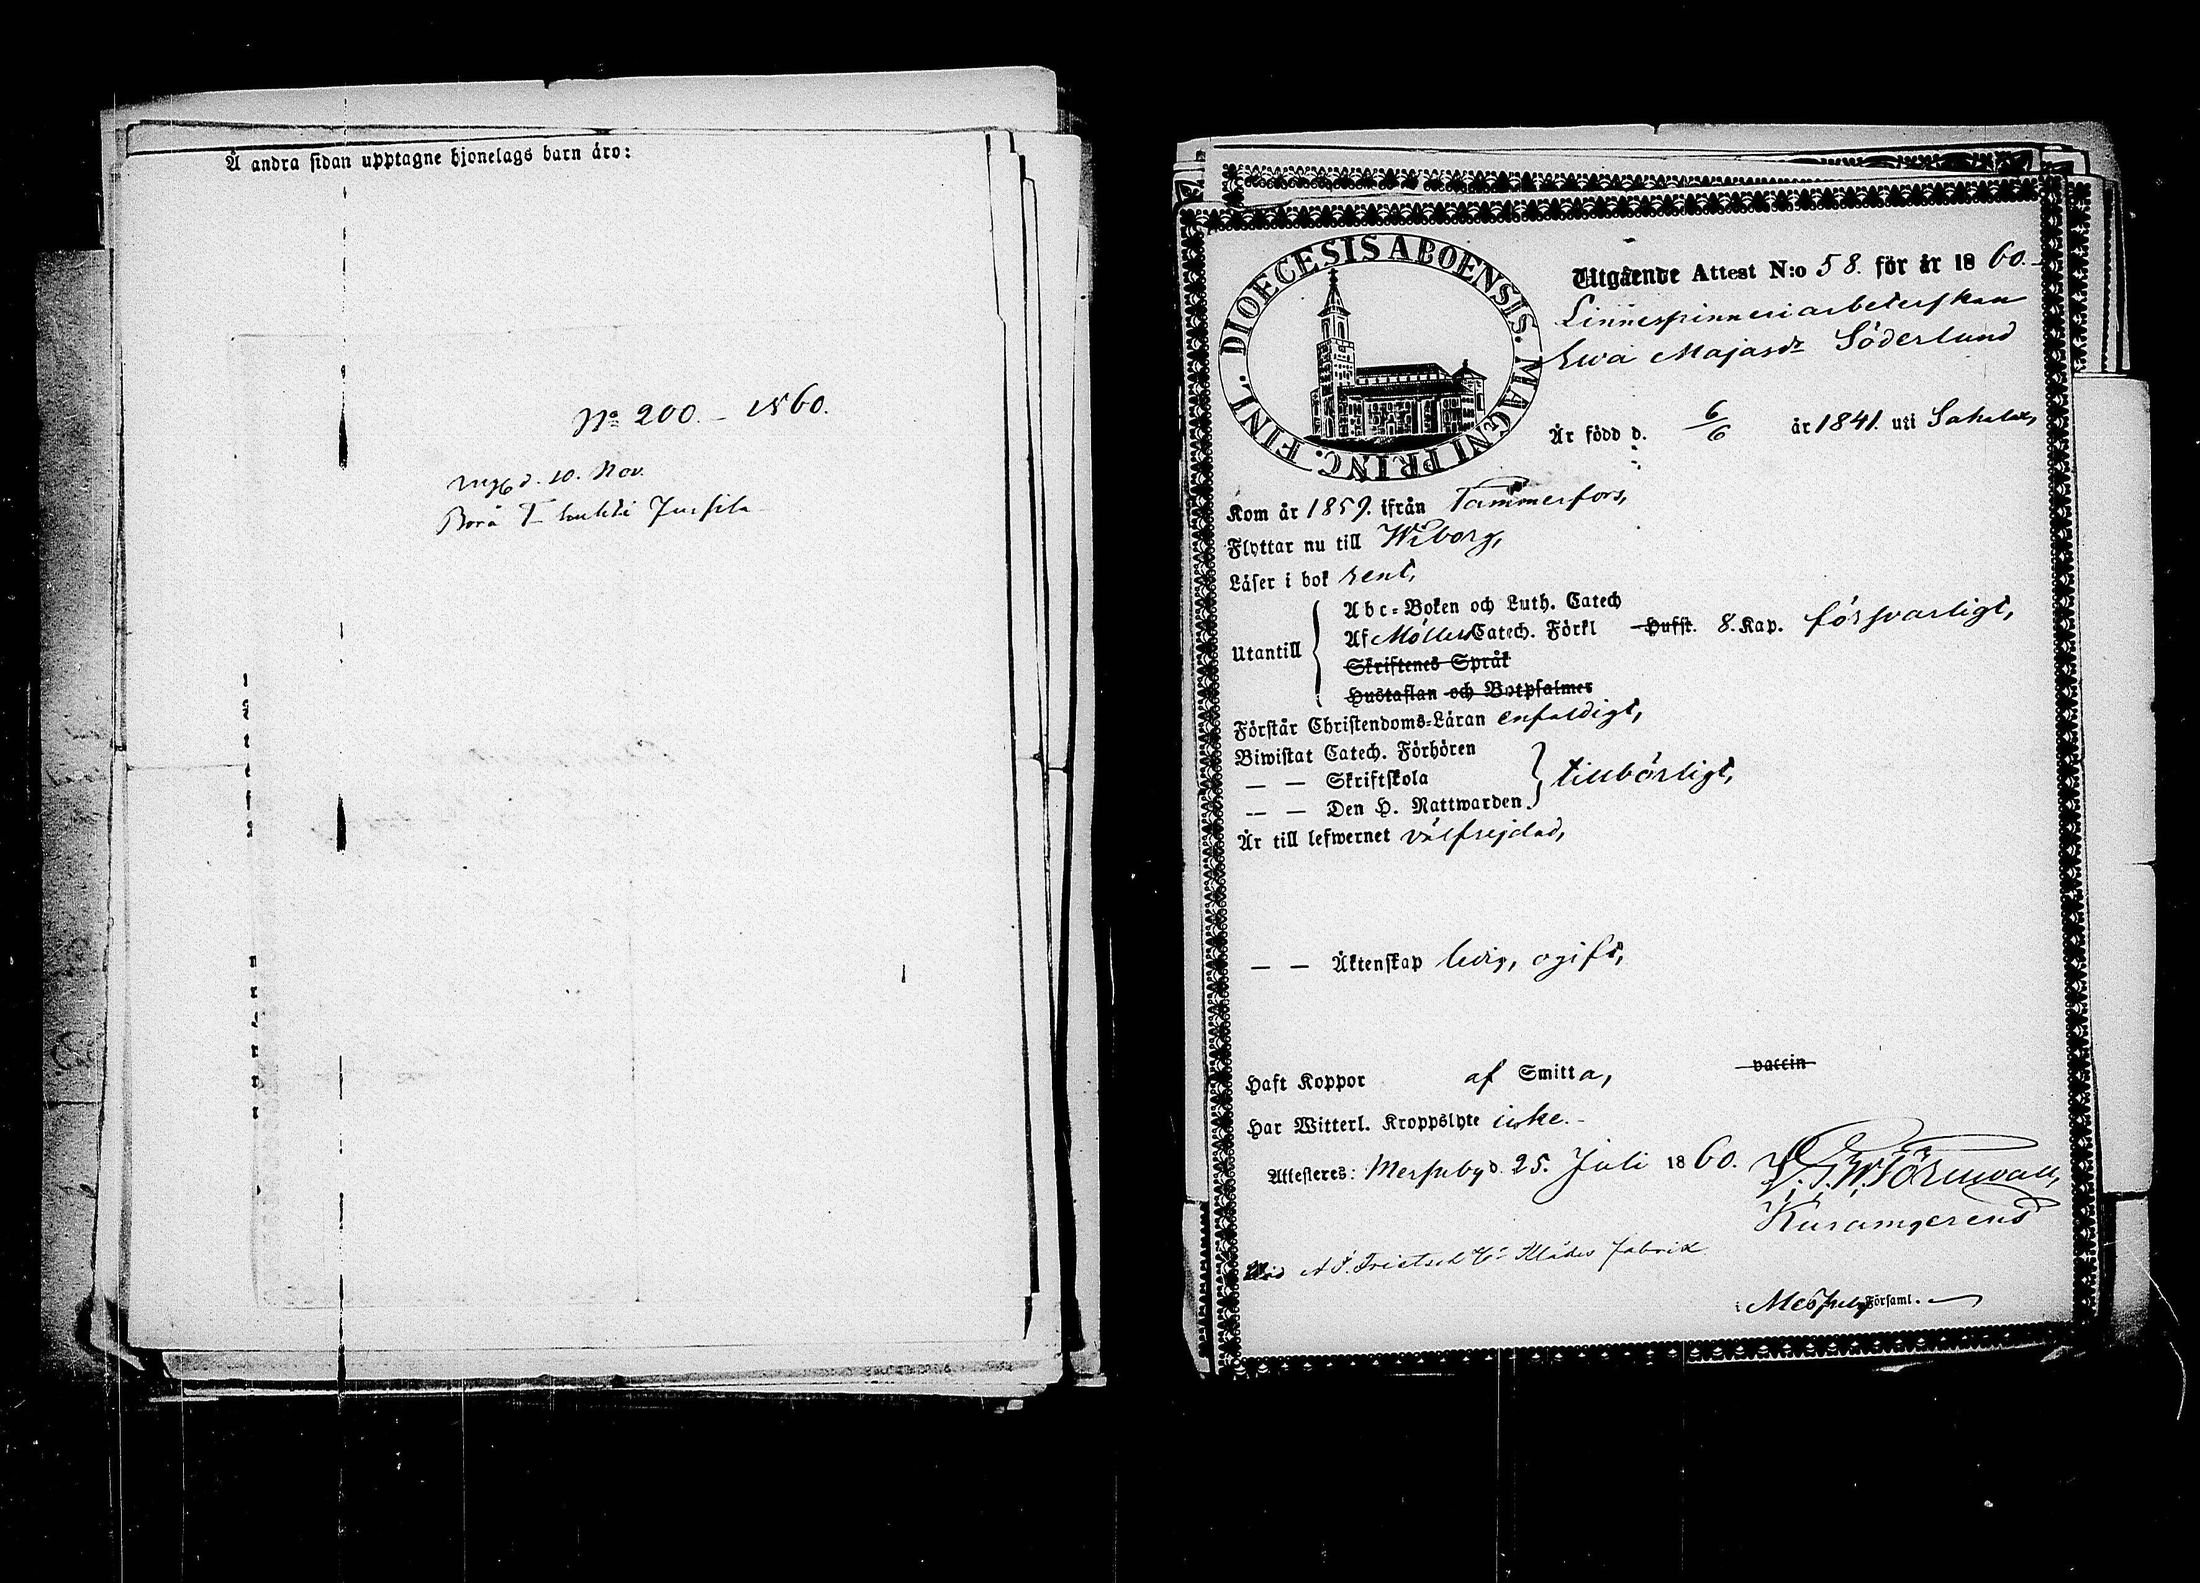 Å andra sidan upptagne hjonelags barn äro:
No 200. - 1860.
d. 10. Nov.
DIOECESIS ABOENSIS. MAGNI PRINC. FINL.
Utgående Attest N:o 58. för år 1860.
Linnespinneriarbeterskan
Ewa Majasdr Söderlund
Är född d. 6/6 år 1841. uti Sahalax,
Kom år 1859. ifrån Tammerfors,
Flyttar nu till Wiborg,
Läser i bok rent,
Utantill
Abc-Boken och Luth. Catech
Af Möllers Catech. Förkl Hufst. 8. Kap. försvarligt,
Skriftenes Språk
Hustaflan och Botpsalmer
Förstår Christendoms-Läran enfaldigt,
Biwistat Catech. Förhören
— — Skriftskola tillbörligt,
— — Den H. Nattwarden.
Är till lefwernet välfrejdad,
— — Äktenskap ledig, ogift,
Haft Koppor af Smitta, vaccin
Har Witterl. Kroppslyte icke.-
Attesteres: Messuby d. 25. Juli 1860. Törnwall,
Kuramgerens
A. F. Frietsch Klädes fabrik
i Messuby Församl.